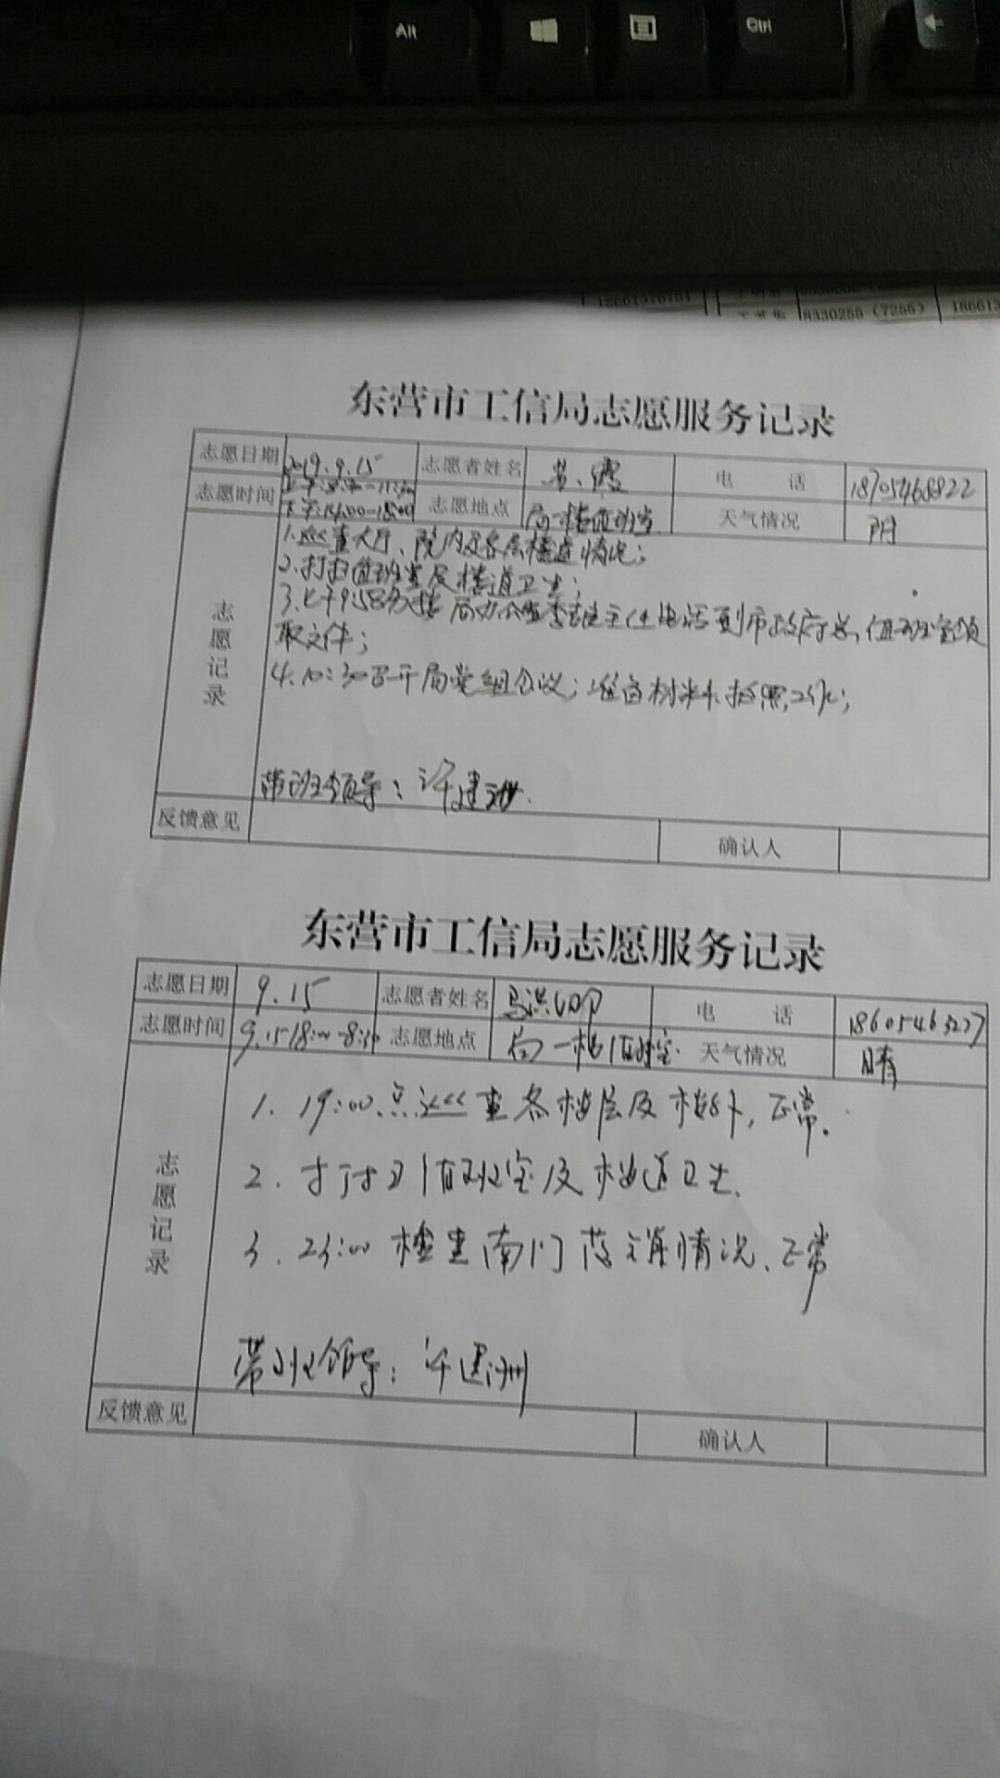 Alt
Ctrl
8330255 (7256)
东营市工信局志愿服务记录
志愿日期 2019.9.15 志愿者姓名 电 话 18705468822
志愿时间 下午:14:00-18:00 志愿地点 局一楼值班室 天气情况 阴
志愿记录
1.巡查大厅、院内及各层楼道情况;
2.打扫值班室及楼道卫生;
3.上午9:58分接局办公室李主任电话到市政府总值班室领
取文件;
4.10:30召开局党组会议;准备材料、拍照,
带班领导:许建洲.
反馈意见 确认人
东营市工信局志愿服务记录
志愿日期 9.15 志愿者姓名 马洪 电 话 18605463277
志愿时间 9.15 18:00-8:30 志愿地点 局一楼值班室 天气情况 晴
志愿记录
1. 19:00点巡查各楼层及楼外,正常.
2. 打扫值班室及楼道卫生.
3. 23:00检查南门落锁情况、正常
带班领导:许建洲
反馈意见 确认人